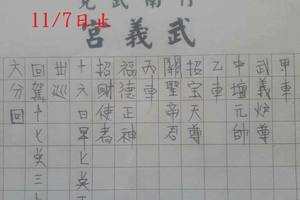 11/7日止
武義宮
甲車
武義炉尊
乙車
中壇元帥
招宝天尊
關聖帝君
丙車
福德正神
招財使者
十六日早七
巡
回駕十七 三
六分回